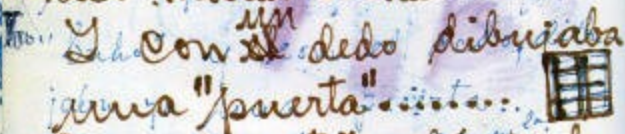 Y con un dedo dibujaba
una "puerta"..........